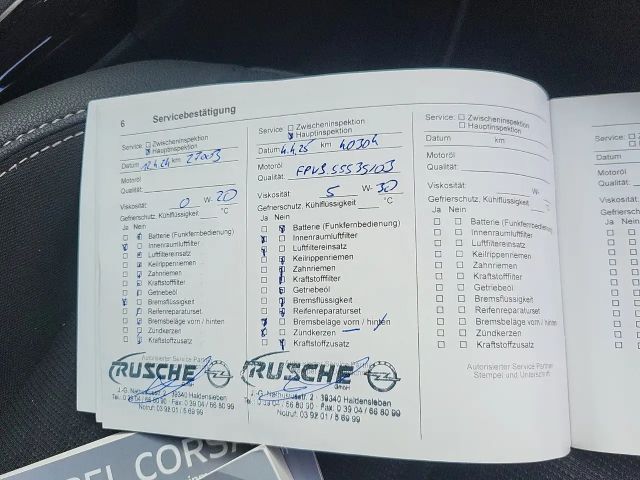 6 Servicebestätigung
Service: Zwischeninspektion
Hauptinspektion
Datum 12.4.24 km 27003
Motoröl
Qualität:
Viskosität: 0 W- 20
Gefrierschutz, Kühlflüssigkeit °C
Ja Nein
Batterie (Funkfernbedienung)
Innenraumluftfilter
Luftfiltereinsatz
Keilrippenriemen
Zahnriemen
Kraftstofffilter
Getriebeöl
Bremsflüssigkeit
Reifenreparaturset
Bremsbeläge vorn / hinten
Zündkerzen
Kraftstoffzusatz
Autorisierter Service Partner
RUSCHE
GmbH
J.-G. Nathusiusstr. 2 · 39340 Haldensleben
Tel.: 0 39 04 / 66 80 90 · Fax: 0 39 04 / 66 80 99
Notruf: 03 92 01 / 5 69 99
Service: Zwischeninspektion
Hauptinspektion
Datum 4.4.25 km 40304
Motoröl
Qualität:
Viskosität: 5 W- 30
Gefrierschutz, Kühlflüssigkeit °C
Ja Nein
Batterie (Funkfernbedienung)
Innenraumluftfilter
Luftfiltereinsatz
Keilrippenriemen
Zahnriemen
Kraftstofffilter
Getriebeöl
Bremsflüssigkeit
Reifenreparaturset
Bremsbeläge vorn / hinten
Zündkerzen
Kraftstoffzusatz
RUSCHE
GmbH
J.-G. Nathusiusstr. 2 · 39340 Haldensleben
Tel.: 0 39 04 / 66 80 90 · Fax: 0 39 04 / 66 80 99
Notruf: 03 92 01 / 5 69 99
Service: Zwischeninspektion
Hauptinspektion
Datum km
Motoröl
Qualität:
Viskosität: W-
Gefrierschutz, Kühlflüssigkeit °C
Ja Nein
Batterie (Funkfernbedienung)
Innenraumluftfilter
Luftfiltereinsatz
Keilrippenriemen
Zahnriemen
Kraftstofffilter
Getriebeöl
Bremsflüssigkeit
Reifenreparaturset
Bremsbeläge vorn / hinten
Zündkerzen
Kraftstoffzusatz
Autorisierter Service Partner
Stempel und Unterschrift
Service:
Datum
Motoröl
Qualität:
Viskosität:
Ja Nein
CORSA